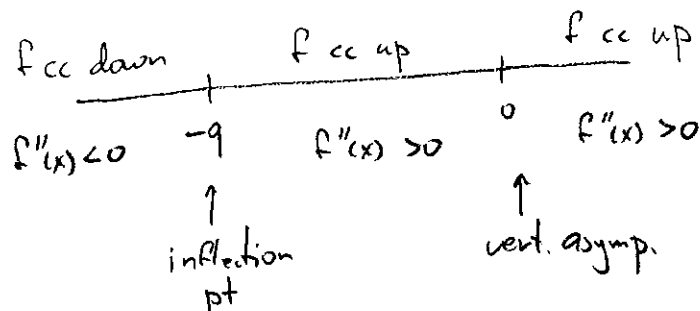 f cc down f cc up f cc up
f''(x)<0 -9 f''(x) >0 0 f''(x) >0
↑ ↑
inflection vert. asymp.
pt